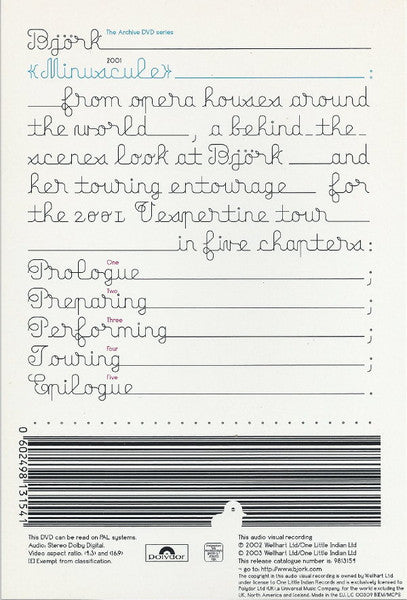 Björk The Archive DVD series
«Minuscule» 2001 :
from opera houses around
the world , a behind-the-
scenes look at Björk and
her touring entourage for
the 2001 Vespertine tour
in five chapters:
One
Prologue ;
Two
Preparing ;
Three
Performing ;
Four
Touring ;
Five
Epilogue ;
0602498131541
This DVD can be read on PAL systems.
Audio: Stereo Dolby Digital.
Video aspect ratio: (4:3) and (16:9)
[E] Exempt from classification.
polydor
This audio visual recording
© 2002 Wellhart Ltd/One Little Indian Ltd
℗ 2003 Wellhart Ltd/One Little Indian Ltd
This release catalogue number is: 9813154
→ go to: http://www.bjork.com
The copyright in this audio visual recording is owned by Wellhart Ltd
under license to One Little Indian Records and is exclusively licensed to
Polydor Ltd (UK) a Universal Music Company, for the world excluding the
UK, North America and Iceland. Made in the EU. LC 00309 BIEM/MCPS